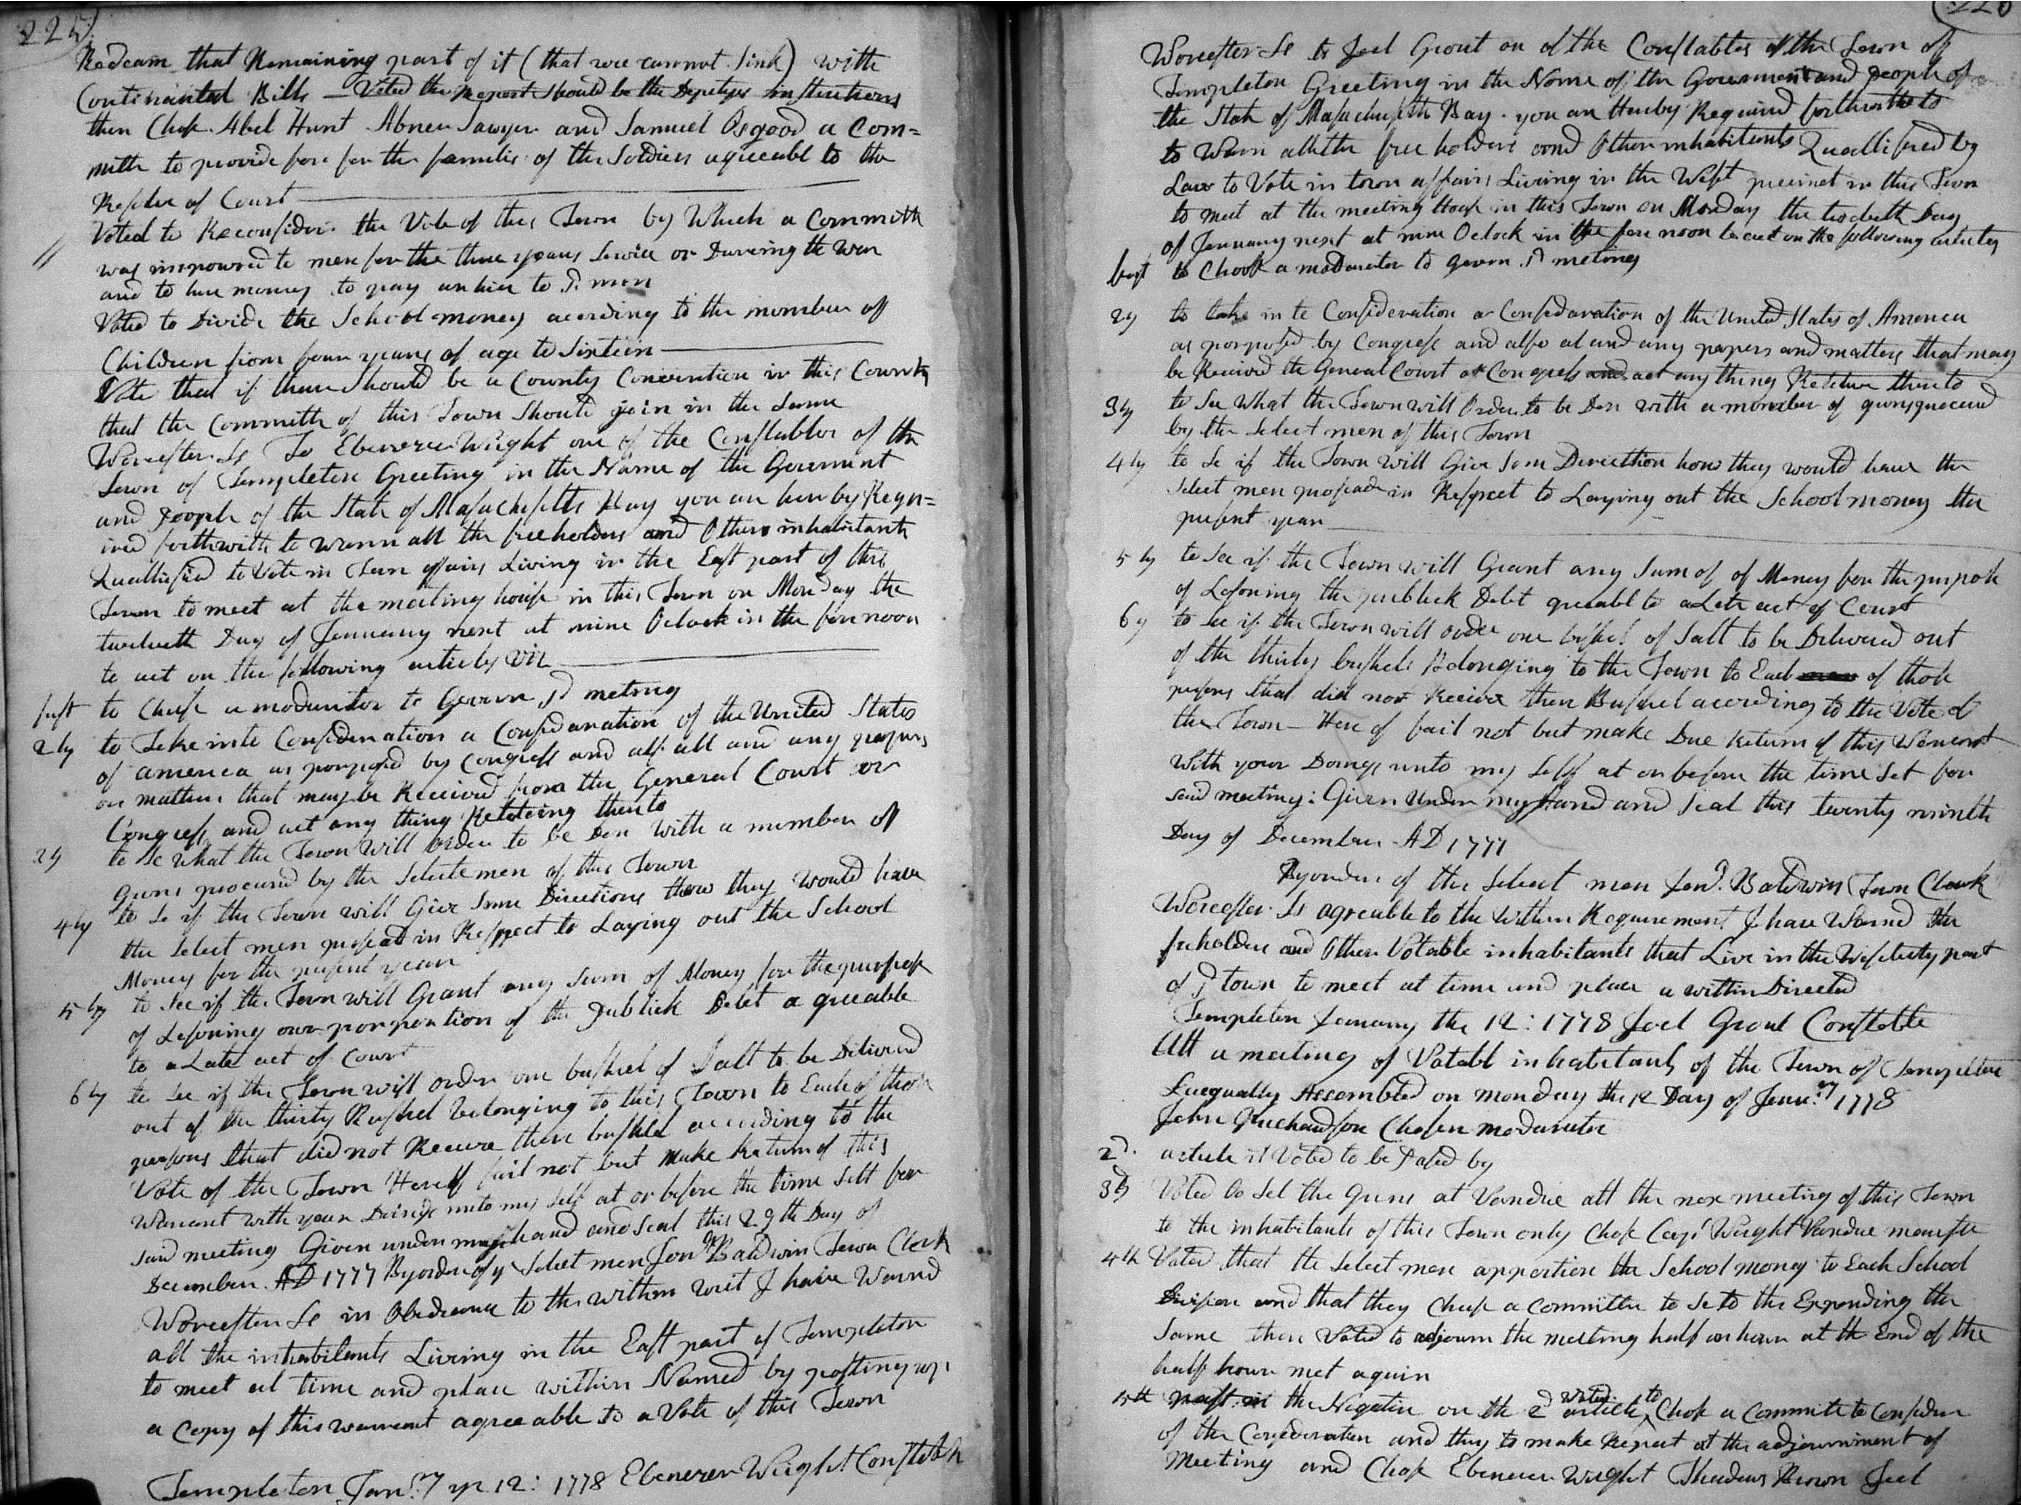 225
Redeam that Remaining part of it (that we cannot Sink) with
Continantal Bills — Voted the Report should be the Deputys instructions
then Chose Abel Hunt Abner Sawyer and Samuel Osgood a Com=
mitte to provide for for the families of the Soldiers agreeabl to the
Resolve of Court
Voted to Reconsider the Vote of this Town by Which a Committe
was impowred to men for the three years Service or Duering the War
and to hire money to pay an hier to Sd men
Voted to Divide the School money according to the number of
Children from four years of age to Sixteen
Vote that if there Should be a County Convention in this County
that the Committe of this Town Should join in the Same
Worcester Ss To Ebenezer Wright one of the Constables of the
Town of Templeton Greeting in the Name of the Goverment
and People of the State of Massachusetts Bay you are hereby Requ=
ired forthwith to warn all the freeholders and Others inhabitants
Quallified to Vote in Town affairs Living in the East part of this
Town to meet at the meeting house in this Town on Monday the
twelveth Day of Jennuary next at nine Oclock in the fore noon
to act on the following articles viz
first to Chuse a moduritor to Govern Sd meting
2ly to Take into Consideration a Confidaration of the United States
of america as porposed by Congress and also all and any papers
or matters that may be Received from the General Court or
Congress and act any thing Relateing thereto
3ly to Se what the Town Will order to be Don With a number of
Guns procured by the Selectemen of this Town
4ly to Se if the Town will Give Some Directions how they would have
the Select men proscad in Respect to Laying out the School
Money for the present year
5ly to See if the Town will Grant any Sum of Money for the purpose
of Lessoning our porportion of the Publick Debt agreeable
to a Late act of Court
6ly to See if the Town will order one bushel of Salt to be Delivred
out of the thirty Bushel belonging to this Town to Each of those
persons that did not Receive there bushel according to the
Vote of the Town Hereof fail not but make Return of this
Warrant with your Doings unto my Self at or before the time Sett for
said meeting Given under my hand and Seal this 29th Day of
December AD 1777 By order of ye Select men Jonn Baldwin Town Clerk
Worcester Ss in Obedience to the within writ I have Warnd
all the inhabitants Living in the East part of Templeton
to meet at time and place within Named by posting up
a Copy of this warrant agreeable to a Vote of this Town
Templeton Janry ye 12: 1778 Ebenezer Wright Constable
226
Worcester Ss to Joel Grout on of the Constables of the Town of
Templeton Greeting in the Name of the Goverment and people of
the State of Massachusetts Bay you are Hereby Required forthwith to
to Warn all the free holders and Other inhabitants Quallifired by
Law to Vote in town affairs Living in the West precinct in this Town
to meet at the meeting House in this Town on Monday the twelvth Day
of Jennuary next at nine Oclock in the fore noon to act on the following articles
first to Choose a moderator to govern Sd meting
2ly to take in to Consideration a Confidaration of the United States of America
as porposed by Congress and also al and any papers and matters that may
be Received the General Court or Congress and act any thing Relative thereto
3ly to See What the Town will Order to be Don with a number of guns procured
by the Select men of this Town
4ly to Se if the Town will Give Som Dirictthon how they would have the
Select men proscade in Respect to Laying out the School money the
present year
5ly to See if the Town will Grant any Sum of of Money for the purpose
of Lesoning the publick Debt greeabl to a Late act of Court
6ly to See if the Town will order one bushel of Salt to be Delivered out
of the thirty bushels Belonging to the Town to Each of those
persons that did not Receive there Bushel according to the Vote of
the Town — Here of fail not but make Due Return of this Warrant
With your Doings unto my Self at or before the time Set for
said meeting: Given Under my hand and Seal this twenty nineth
Day of December AD 1777
By order of the Select men Jond Baldwin Town Clerk
Worcester Ss agreeable to the Within Requirement I have Warned the
freholders and Other Votable inhabitants that Live in the Westerly part
of Sd town to meet at time and place a within Directed
Templeton Jenuary the 12: 1778 Joel Grout Constable
Att a meeting of Votabl inhabitants of the Town of Templeton
Leagually Assembled on monday the 12 Day of Jenury 1778
John Richardson Chosen modurator
2d article it Voted to be Pased by
3ly Voted to Sel the Guns at Vandue att the nex meeting of this Town
to the inhabitants of this Town only Chose Capt Wright Vandue master
4th Voted that the Select men apportion the School money to Each School
Division and that they Chuse a Committee to Se to the Expending the
Same then Voted to adjourn the meeting half an hour at the End of the
half hour met again
5th past in the Negative on the 2d article Voted to Chose a Committe to Consider
of the Confideration and they to make Report at the adjournment of
Meeting and Chose Ebenezer Wright Thadeus Brown Joel